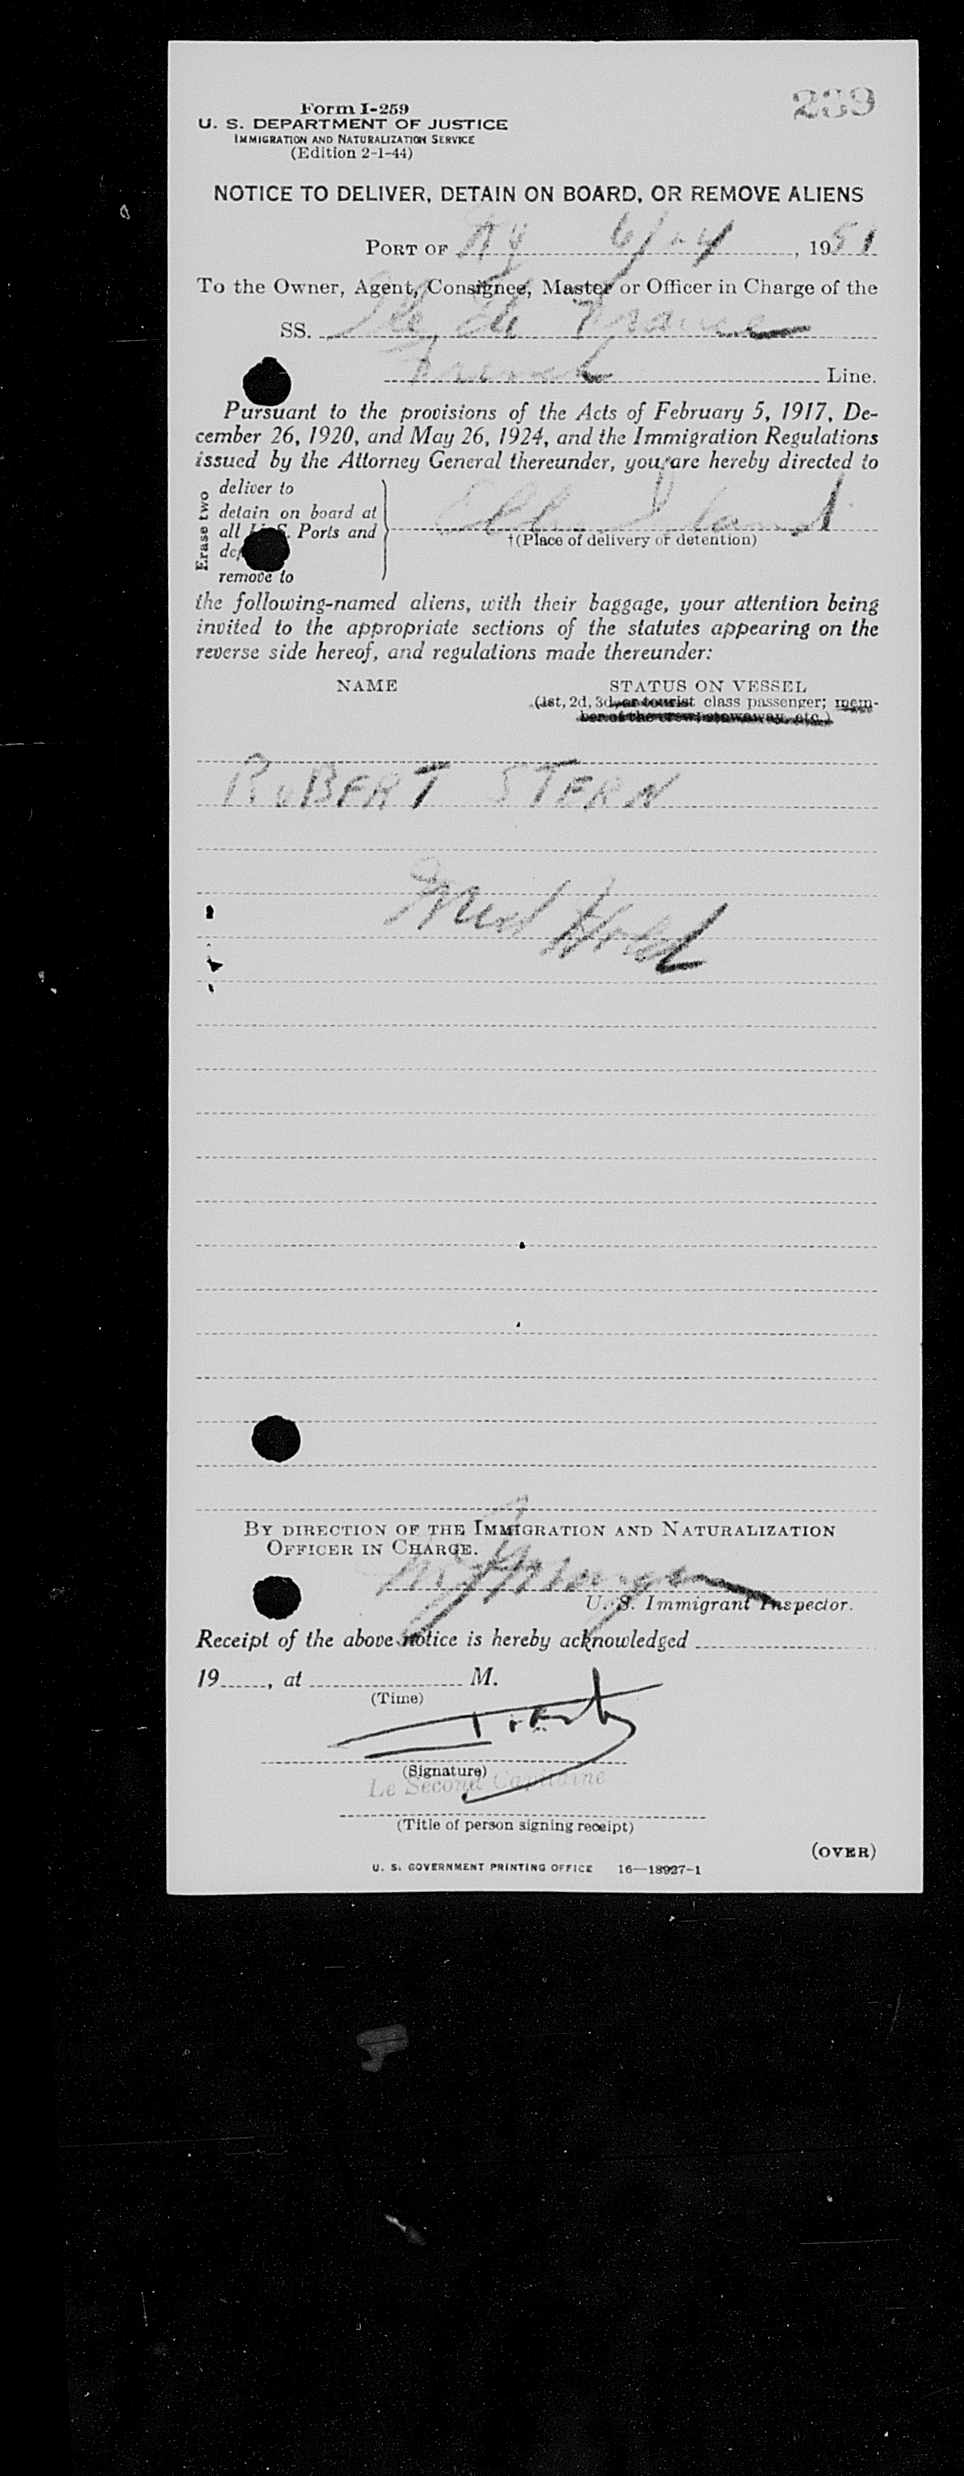 239
Form I-259
U. S. DEPARTMENT OF JUSTICE
IMMIGRATION AND NATURALIZATION SERVICE
(Edition 2-1-44)
NOTICE TO DELIVER, DETAIN ON BOARD, OR REMOVE ALIENS
PORT OF NY 6/24, 1951
To the Owner, Agent, Consignee, Master or Officer in Charge of the
SS. Ile de France
French Line.
Pursuant to the provisions of the Acts of February 5, 1917, De-
cember 26, 1920, and May 26, 1924, and the Immigration Regulations
issued by the Attorney General thereunder, you are hereby directed to
Erase two
deliver to
detain on board at
all U.S. Ports and
remove to
Ellis Island
†(Place of delivery or detention)
the following-named aliens, with their baggage, your attention being
invited to the appropriate sections of the statutes appearing on the
reverse side hereof, and regulations made thereunder:
NAME STATUS ON VESSEL
(1st, 2d, 3d, or tourist class passenger; mem-
ber of the crew; stowaway, etc.)
ROBERT STERN
Med Hold
BY DIRECTION OF THE IMMIGRATION AND NATURALIZATION
OFFICER IN CHARGE.
U. S. Immigrant Inspector.
Receipt of the above notice is hereby acknowledged
19, at M.
(Time)
(Signature)
Le Second Capitaine
(Title of person signing receipt)
(OVER)
U. S. GOVERNMENT PRINTING OFFICE 16—18927-1